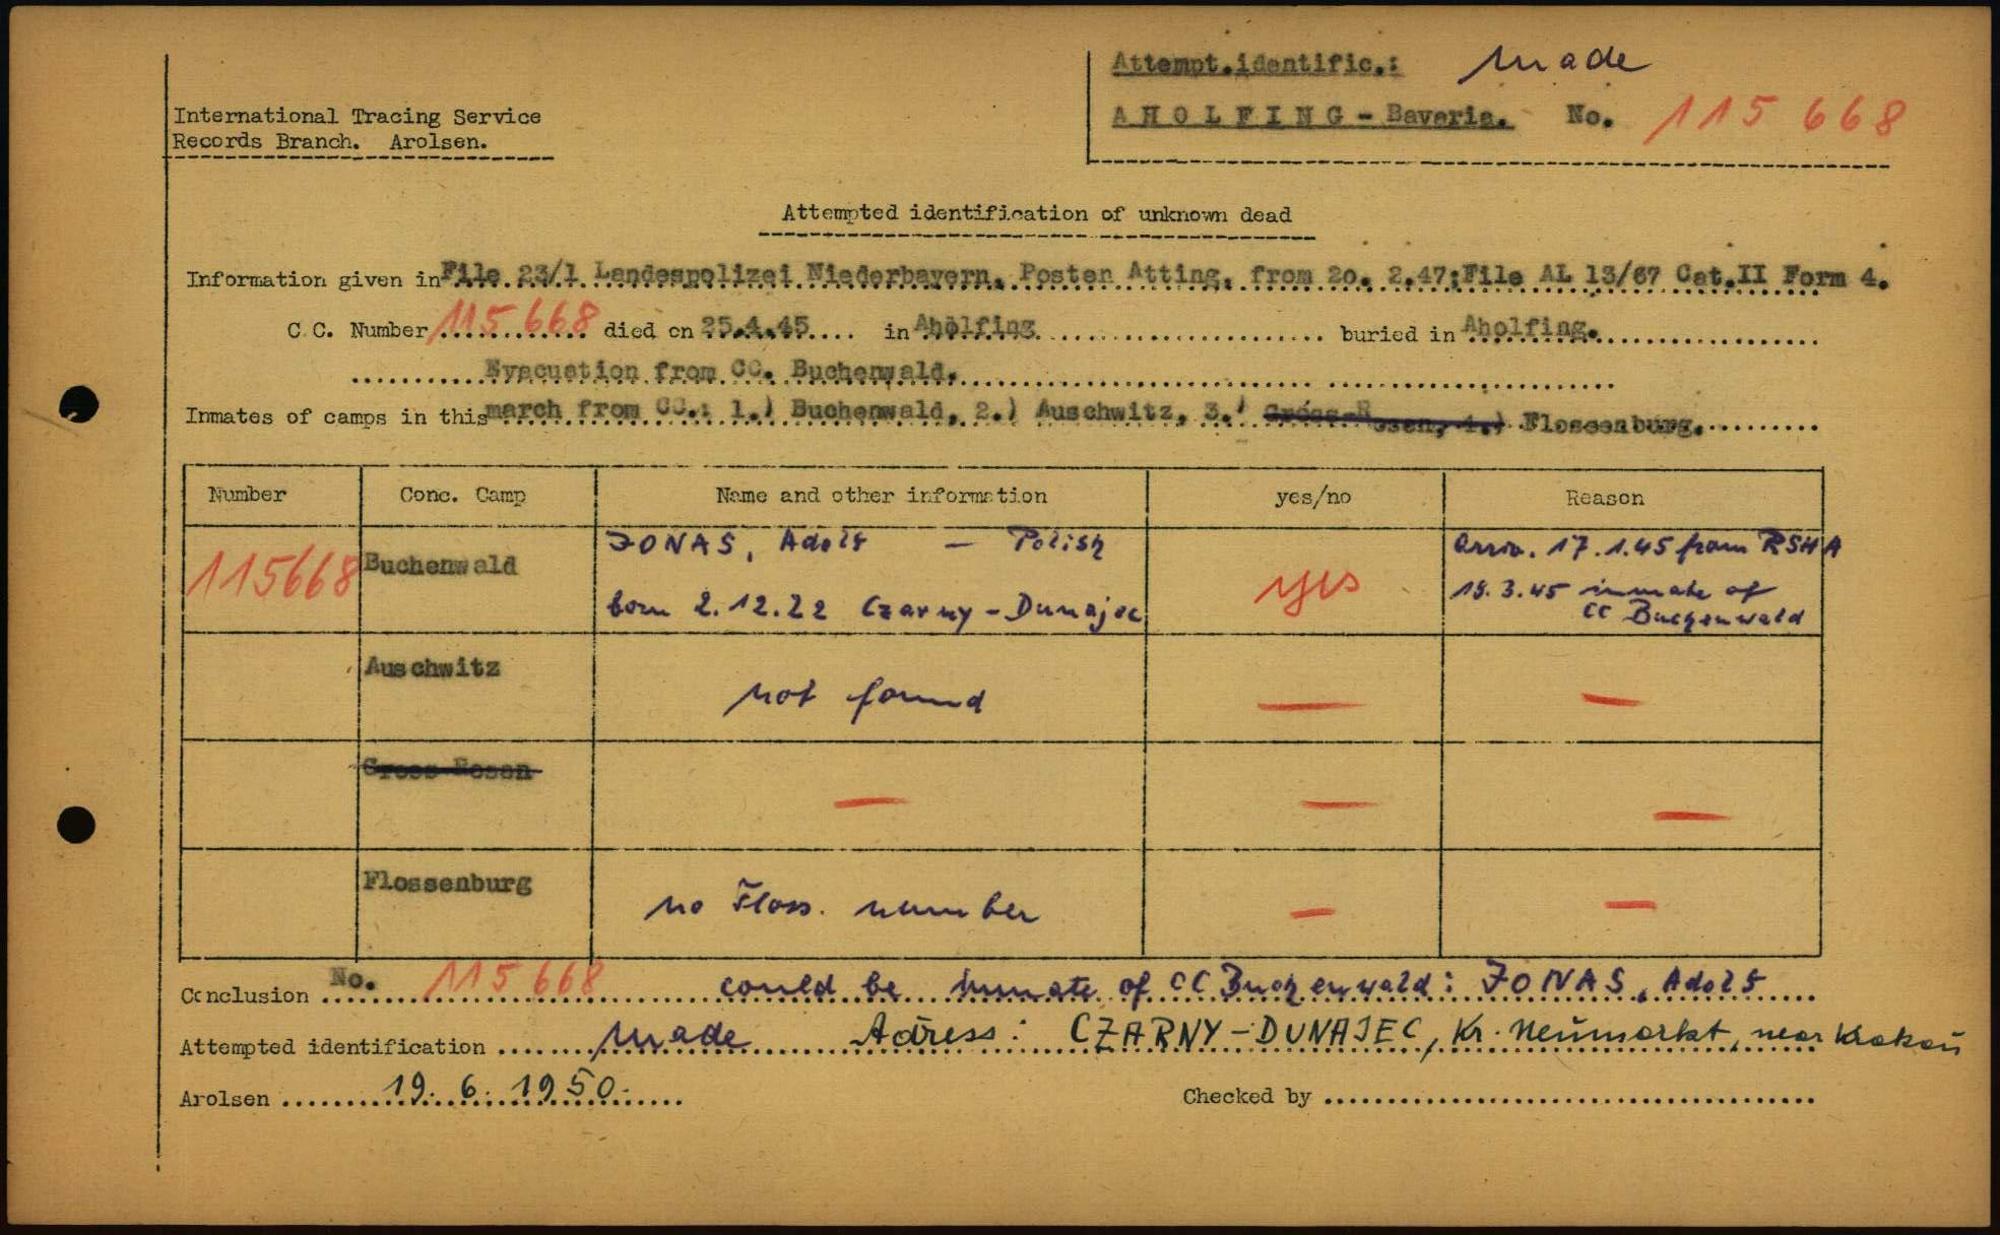 Attempt.identific.: made
International Tracing Service
Records Branch. Arolsen.
AHOLFING - Bavaria. No. 115 668
Attempted identification of unknown dead
Information given in File 23/1 Landespolizei Niederbayern, Posten Atting, from 2o. 2.47;File AL 13/67 Cat.II Form 4.
C.C. Number 115 668 died on 25.4.45 in Aholfing buried in Aholfing.
Evacuation from CC. Buchenwald.
Inmates of camps in this march from CC.: 1.) Buchenwald, 2.) Auschwitz, 3.) Gross-Rosen, 4.) Flossenburg.
Number Conc. Camp Name and other information yes/no Reason
115668 Buchenwald JONAS, Adolf — Polish yes arriv. 17.1.45 from RSHA
born 2.12.22 Czarny-Dunajec 19.3.45 inmate of
CC Buchenwald
Auschwitz not found — —
Gross Rosen — — —
Flossenburg no Floss. number — —
Conclusion No. 115 668 could be inmate of CC Buchenwald: JONAS, Adolf
Attempted identification made Adress: CZARNY-DUNAJEC, Kr. Neumarkt, near Krakau
Arolsen 19. 6. 1950. Checked by